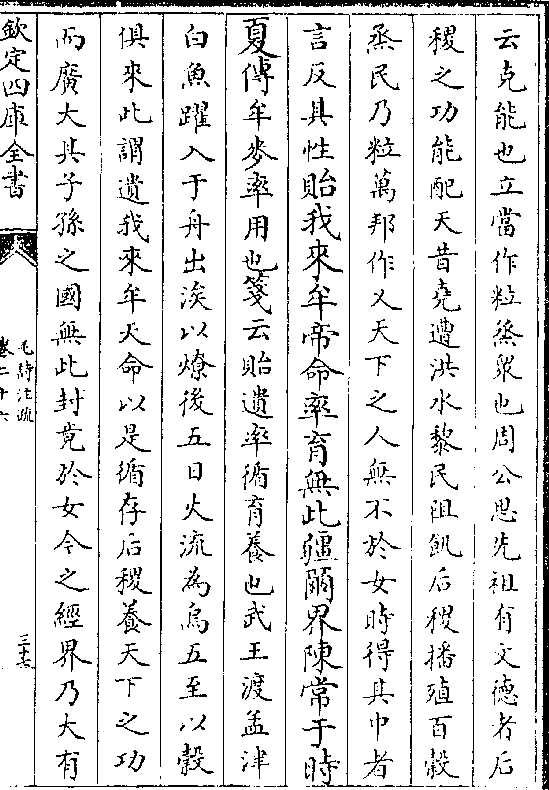 云克能也立當作粒烝衆也周公思先祖有文德者后
稷之功能配天昔堯遭洪水黎民阻飢后稷播殖百穀
烝民乃粒萬邦作乂天下之人無不於女時得其中者
言反其性貽我來牟帝命率育無此疆爾界陳常于時
夏傳牟麥率用也箋云貽遺率循育養也武王渡孟津
白魚躍入于舟出涘以燎後五日火流為烏五至以穀
俱來此謂遺我來牟天命以是循存后稷養天下之功
而廣大其子孫之國無此封竟於女今之經界乃大有
欽定四庫全書
毛詩注疏
卷二十六